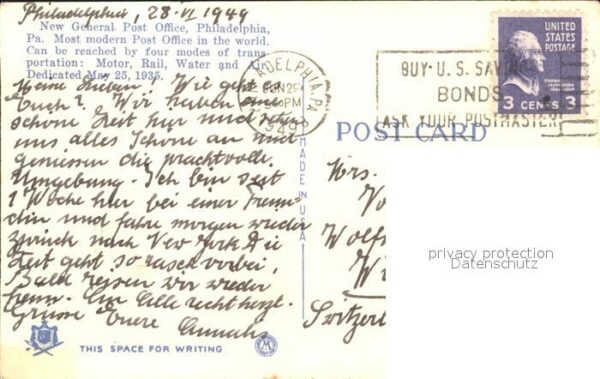 Philadelphia, 28. VI 1949
New General Post Office, Philadelphia,
Pa. Most modern Post Office in the world.
Can be reached by four modes of trans-
portation: Motor, Rail, Water and Air.
Dedicated May 25, 1935.
Meine Lieben! Wie geht es
Euch? Wir haben eine
schöne Zeit hier und sehen
uns alles Schöne an und
geniessen die prachtvolle
Umgebung. Ich bin seit
1 Woche hier bei einer Freun-
din und fahre morgen wieder
zurück nach New York. Die
Zeit geht so rasch vorbei,
Bald reisen wir wieder
heim. Alle recht herzl.
Grüsse Euere
THIS SPACE FOR WRITING
MADE IN U.S.A.
PHILADELPHIA, PA.
JUN 29
PM
1949
BUY U.S. SAVINGS
BONDS
ASK YOUR POSTMASTER
UNITED
STATES
POSTAGE
THOMAS
3 CENTS 3
POST CARD
Mrs.
Switzerl
privacy protection
Datenschutz